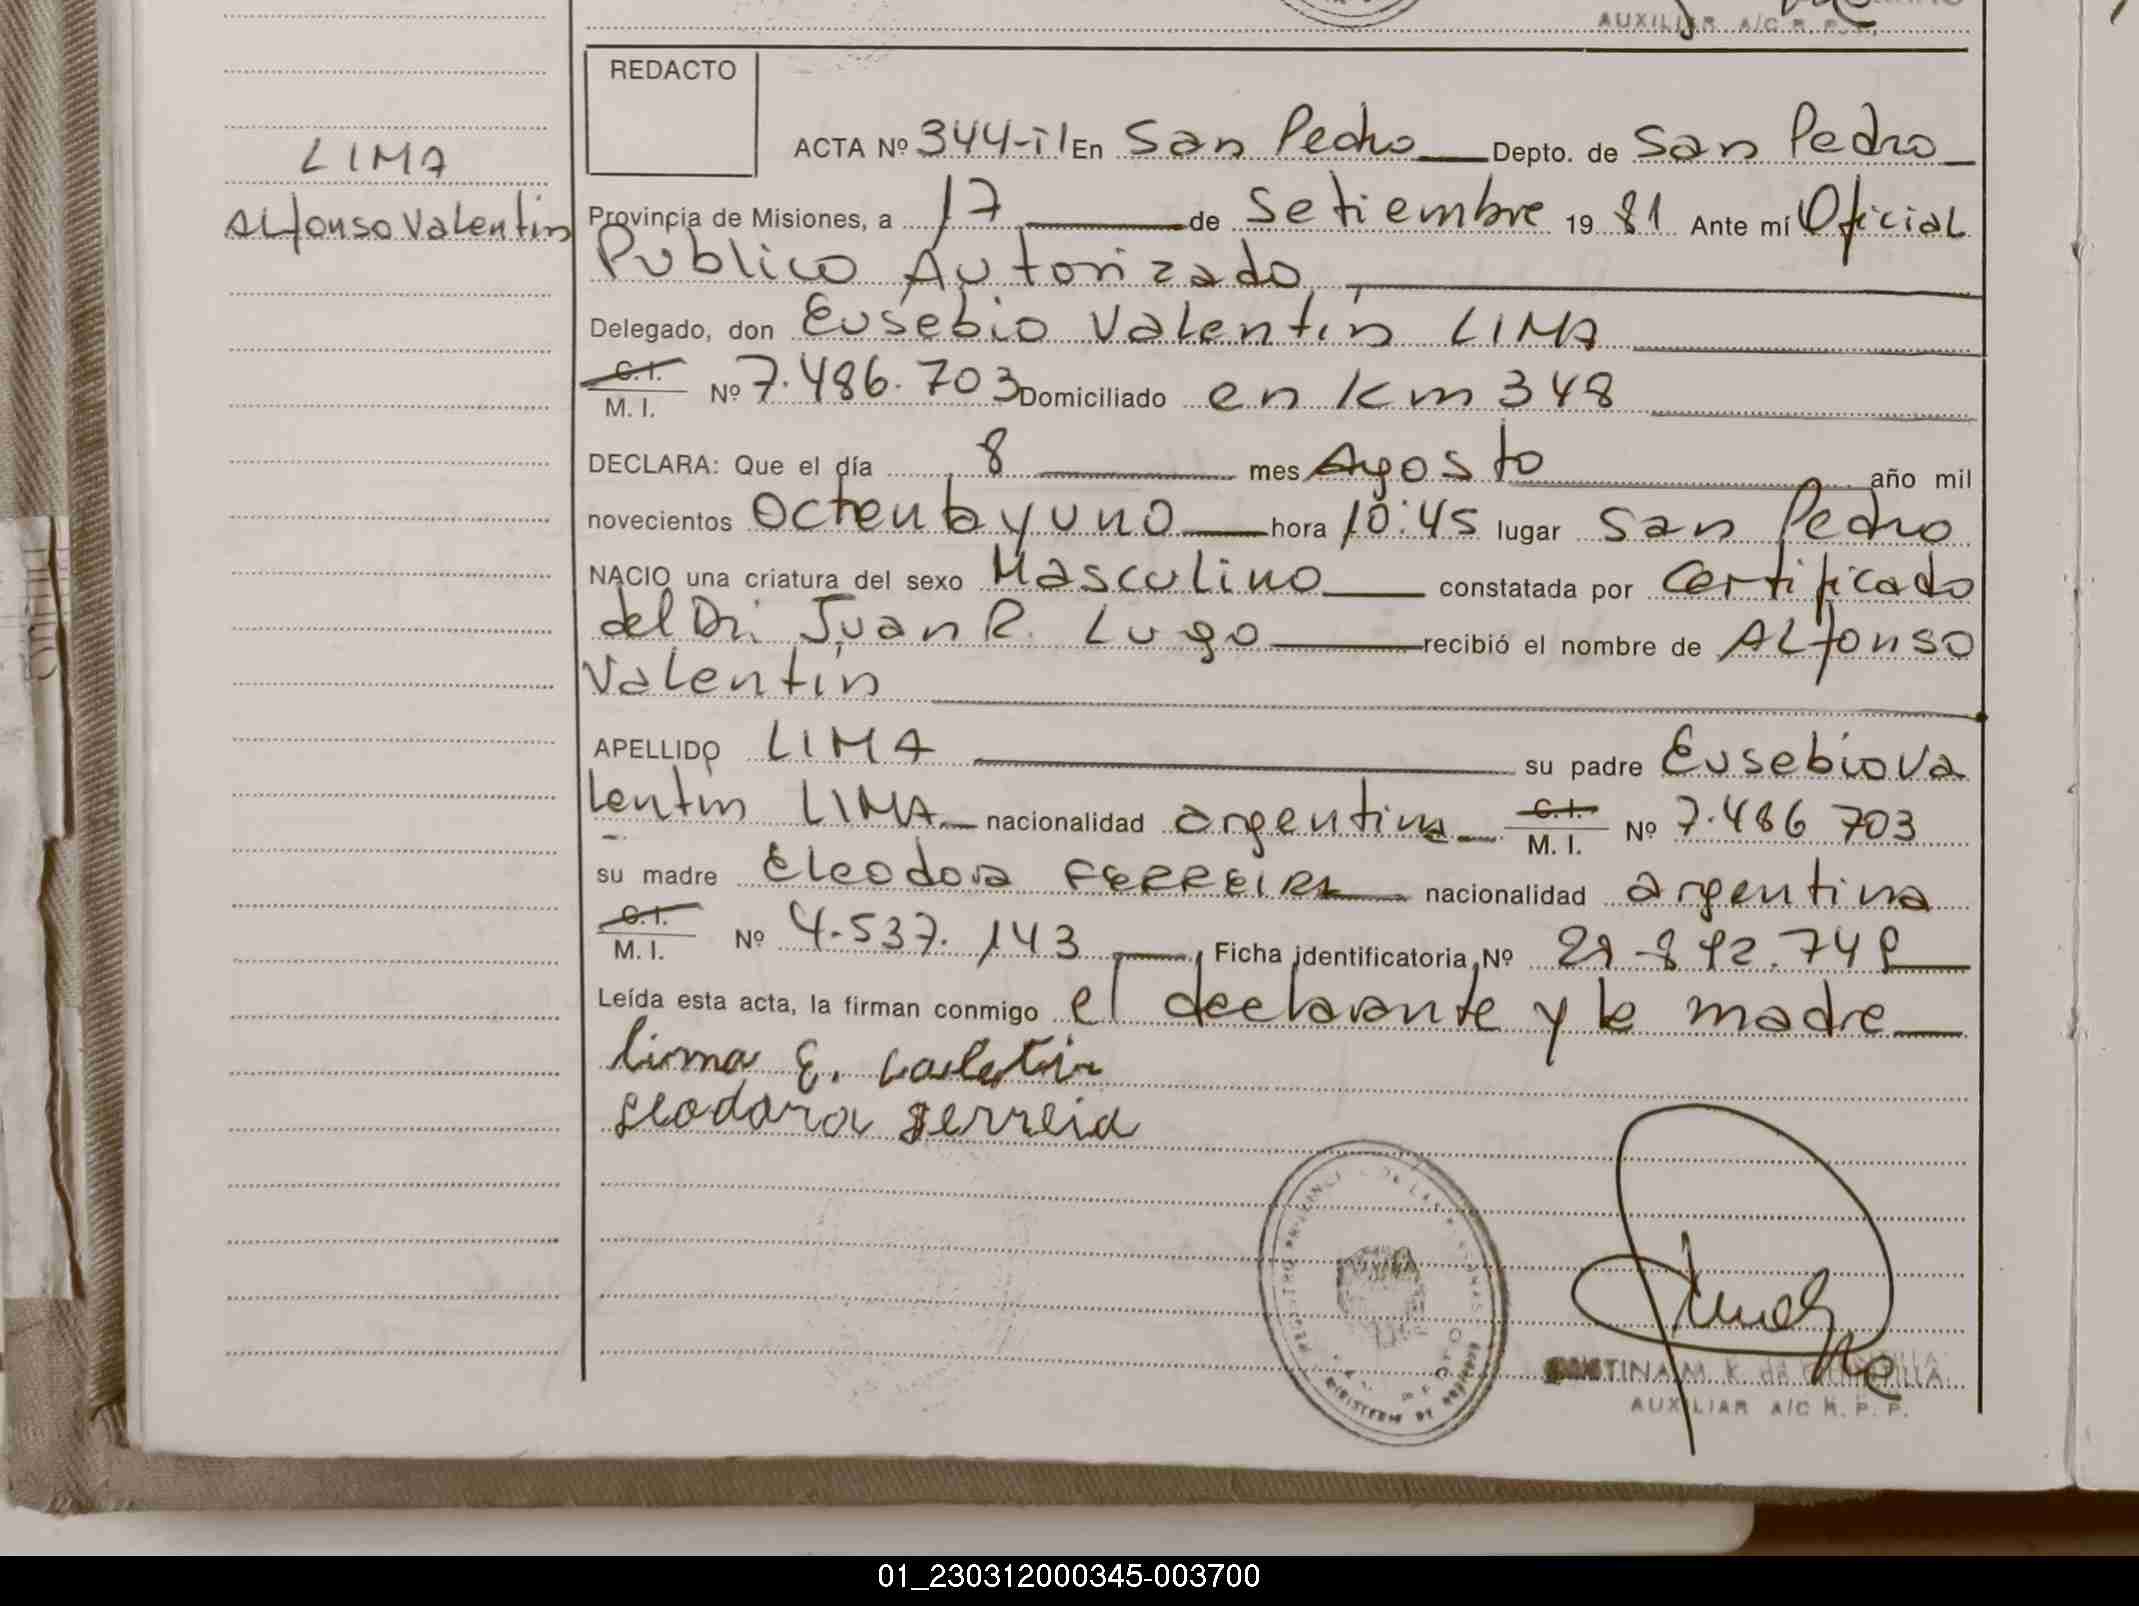 AUXILIAR A/C R. P. P.
REDACTO
LIMA
Alfonso Valentin
ACTA Nº 344-TI En San Pedro Depto. de San Pedro
Provincia de Misiones, a 17 de Setiembre 19 81 Ante mí Oficial
Publico Autorizado
Delegado, don Eusebio Valentin LIMA
C. I. M. I. Nº 7.486.703 Domiciliado en Km 348
DECLARA: Que el día 8 mes Agosto año mil
novecientos Octenta y uno hora 10:45 lugar San Pedro
NACIO una criatura del sexo Masculino constatada por Certificado
del Dr. Juan R. Lugo recibió el nombre de Alfonso
Valentin
APELLIDO LIMA su padre Eusebio Va
lentin LIMA nacionalidad argentina C. I. M. I. Nº 7.486 703
su madre Eleodora FERREIRA nacionalidad argentina
C. I. M. I. Nº 4.537.143 Ficha identificatoria Nº
Leída esta acta, la firman conmigo el declarante y la madre
lima E. valetin
eleodora ferreia
AUXILIAR A/C R. P. P.
01_230312000345-003700